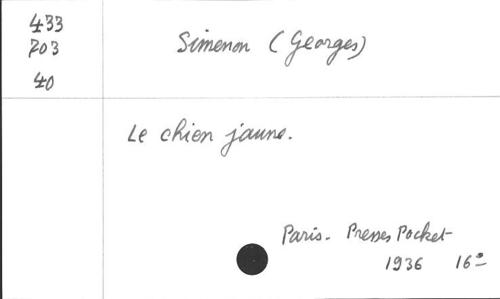 433
703
40
Simenon (Georges)
Le chien jaune.
Paris. Presses Pocket
1936 16°